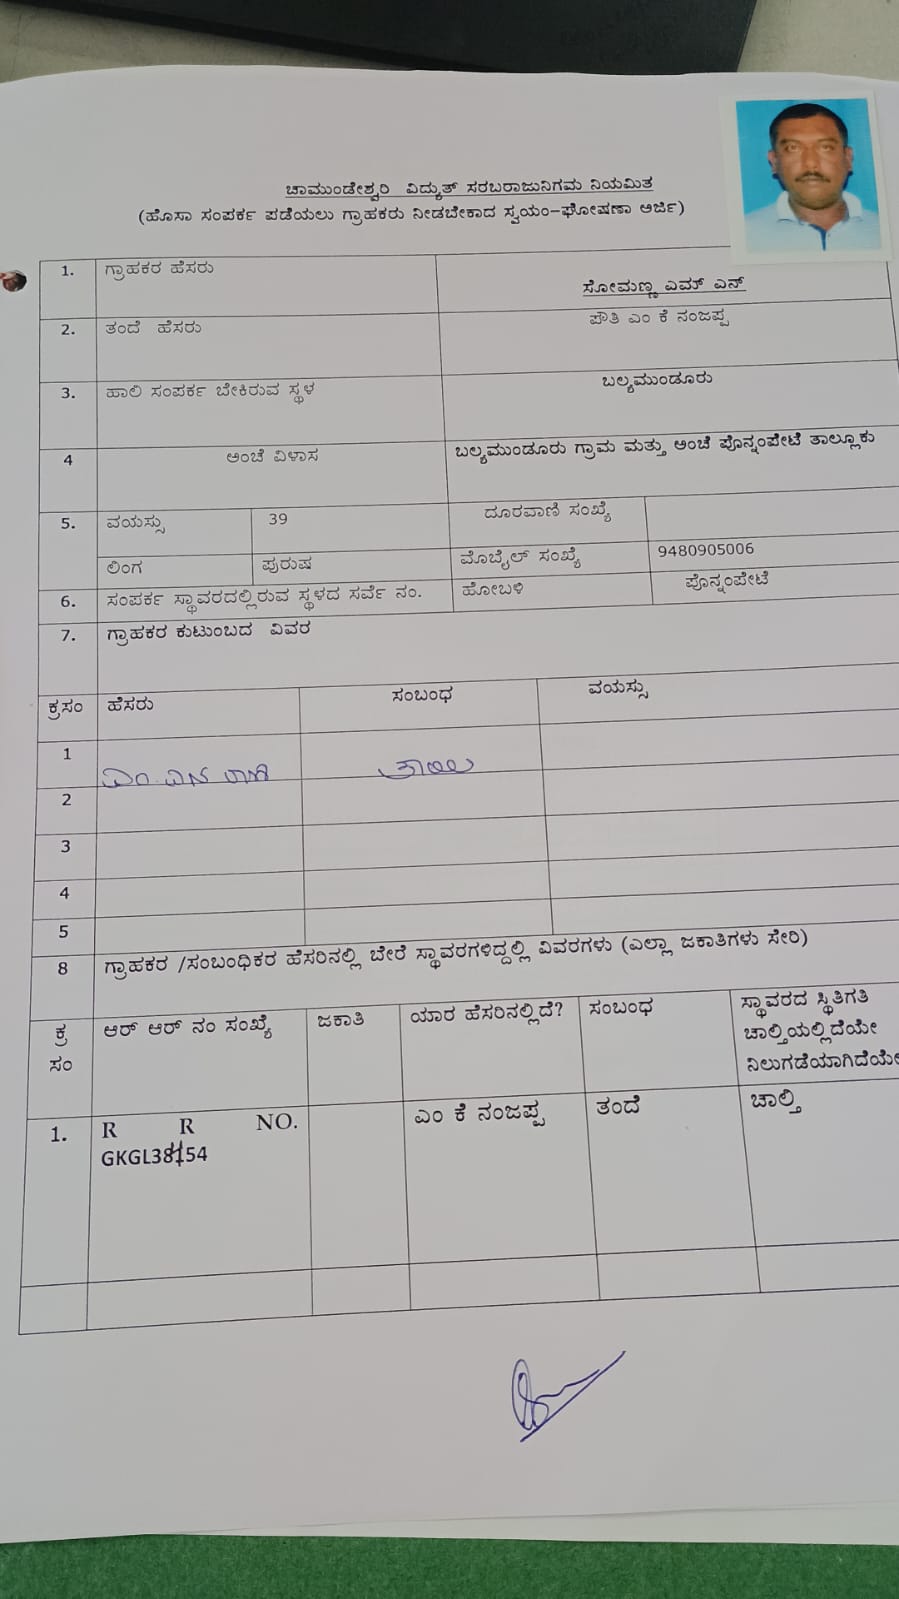 ಚಾಮುಂಡೇಶ್ವರಿ ವಿದ್ಯುತ್ ಸರಬರಾಜುನಿಗಮ ನಿಯಮಿತ
(ಹೊಸಾ ಸಂಪರ್ಕ ಪಡೆಯಲು ಗ್ರಾಹಕರು ನೀಡಬೇಕಾದ ಸ್ವಯಂ-ಘೋಷಣಾ ಅರ್ಜಿ)
1. ಗ್ರಾಹಕರ ಹೆಸರು ಸೋಮಣ್ಣ ಎಮ್ ಎನ್
2. ತಂದೆ ಹೆಸರು ಪೌತಿ ಎಂ ಕೆ ನಂಜಪ್ಪ
3. ಹಾಲಿ ಸಂಪರ್ಕ ಬೇಕಿರುವ ಸ್ಥಳ ಬಲ್ಯಮುಂಡೂರು
4 ಅಂಚೆ ವಿಳಾಸ ಬಲ್ಯಮುಂಡೂರು ಗ್ರಾಮ ಮತ್ತು ಅಂಚೆ ಪೊನ್ನಂಪೇಟೆ ತಾಲ್ಲೂಕು
5. ವಯಸ್ಸು 39 ದೂರವಾಣಿ ಸಂಖ್ಯೆ
ಲಿಂಗ ಪುರುಷ ಮೊಬೈಲ್ ಸಂಖ್ಯೆ 9480905006
6. ಸಂಪರ್ಕ ಸ್ಥಾವರದಲ್ಲಿರುವ ಸ್ಥಳದ ಸರ್ವೆ ನಂ. ಹೋಬಳಿ ಪೊನ್ನಂಪೇಟೆ
7. ಗ್ರಾಹಕರ ಕುಟುಂಬದ ವಿವರ
ಕ್ರಸಂ ಹೆಸರು ಸಂಬಂಧ ವಯಸ್ಸು
1 ಎಂ. ಎನ ತಾಯಿ
2
3
4
5
8 ಗ್ರಾಹಕರ /ಸಂಬಂಧಿಕರ ಹೆಸರಿನಲ್ಲಿ ಬೇರೆ ಸ್ಥಾವರಗಳಿದ್ದಲ್ಲಿ ವಿವರಗಳು (ಎಲ್ಲಾ ಜಕಾತಿಗಳು ಸೇರಿ)
ಕ್ರ ಆರ್ ಆರ್ ನಂ ಸಂಖ್ಯೆ ಜಕಾತಿ ಯಾರ ಹೆಸರಿನಲ್ಲಿದೆ? ಸಂಬಂಧ ಸ್ಥಾವರದ ಸ್ಥಿತಿಗತಿ
ಸಂ ಚಾಲ್ತಿಯಲ್ಲಿದೆಯೇ
ನಿಲುಗಡೆಯಾಗಿದೆಯೇ
1. R R NO. ಎಂ ಕೆ ನಂಜಪ್ಪ ತಂದೆ ಚಾಲ್ತಿ
GKGL38154